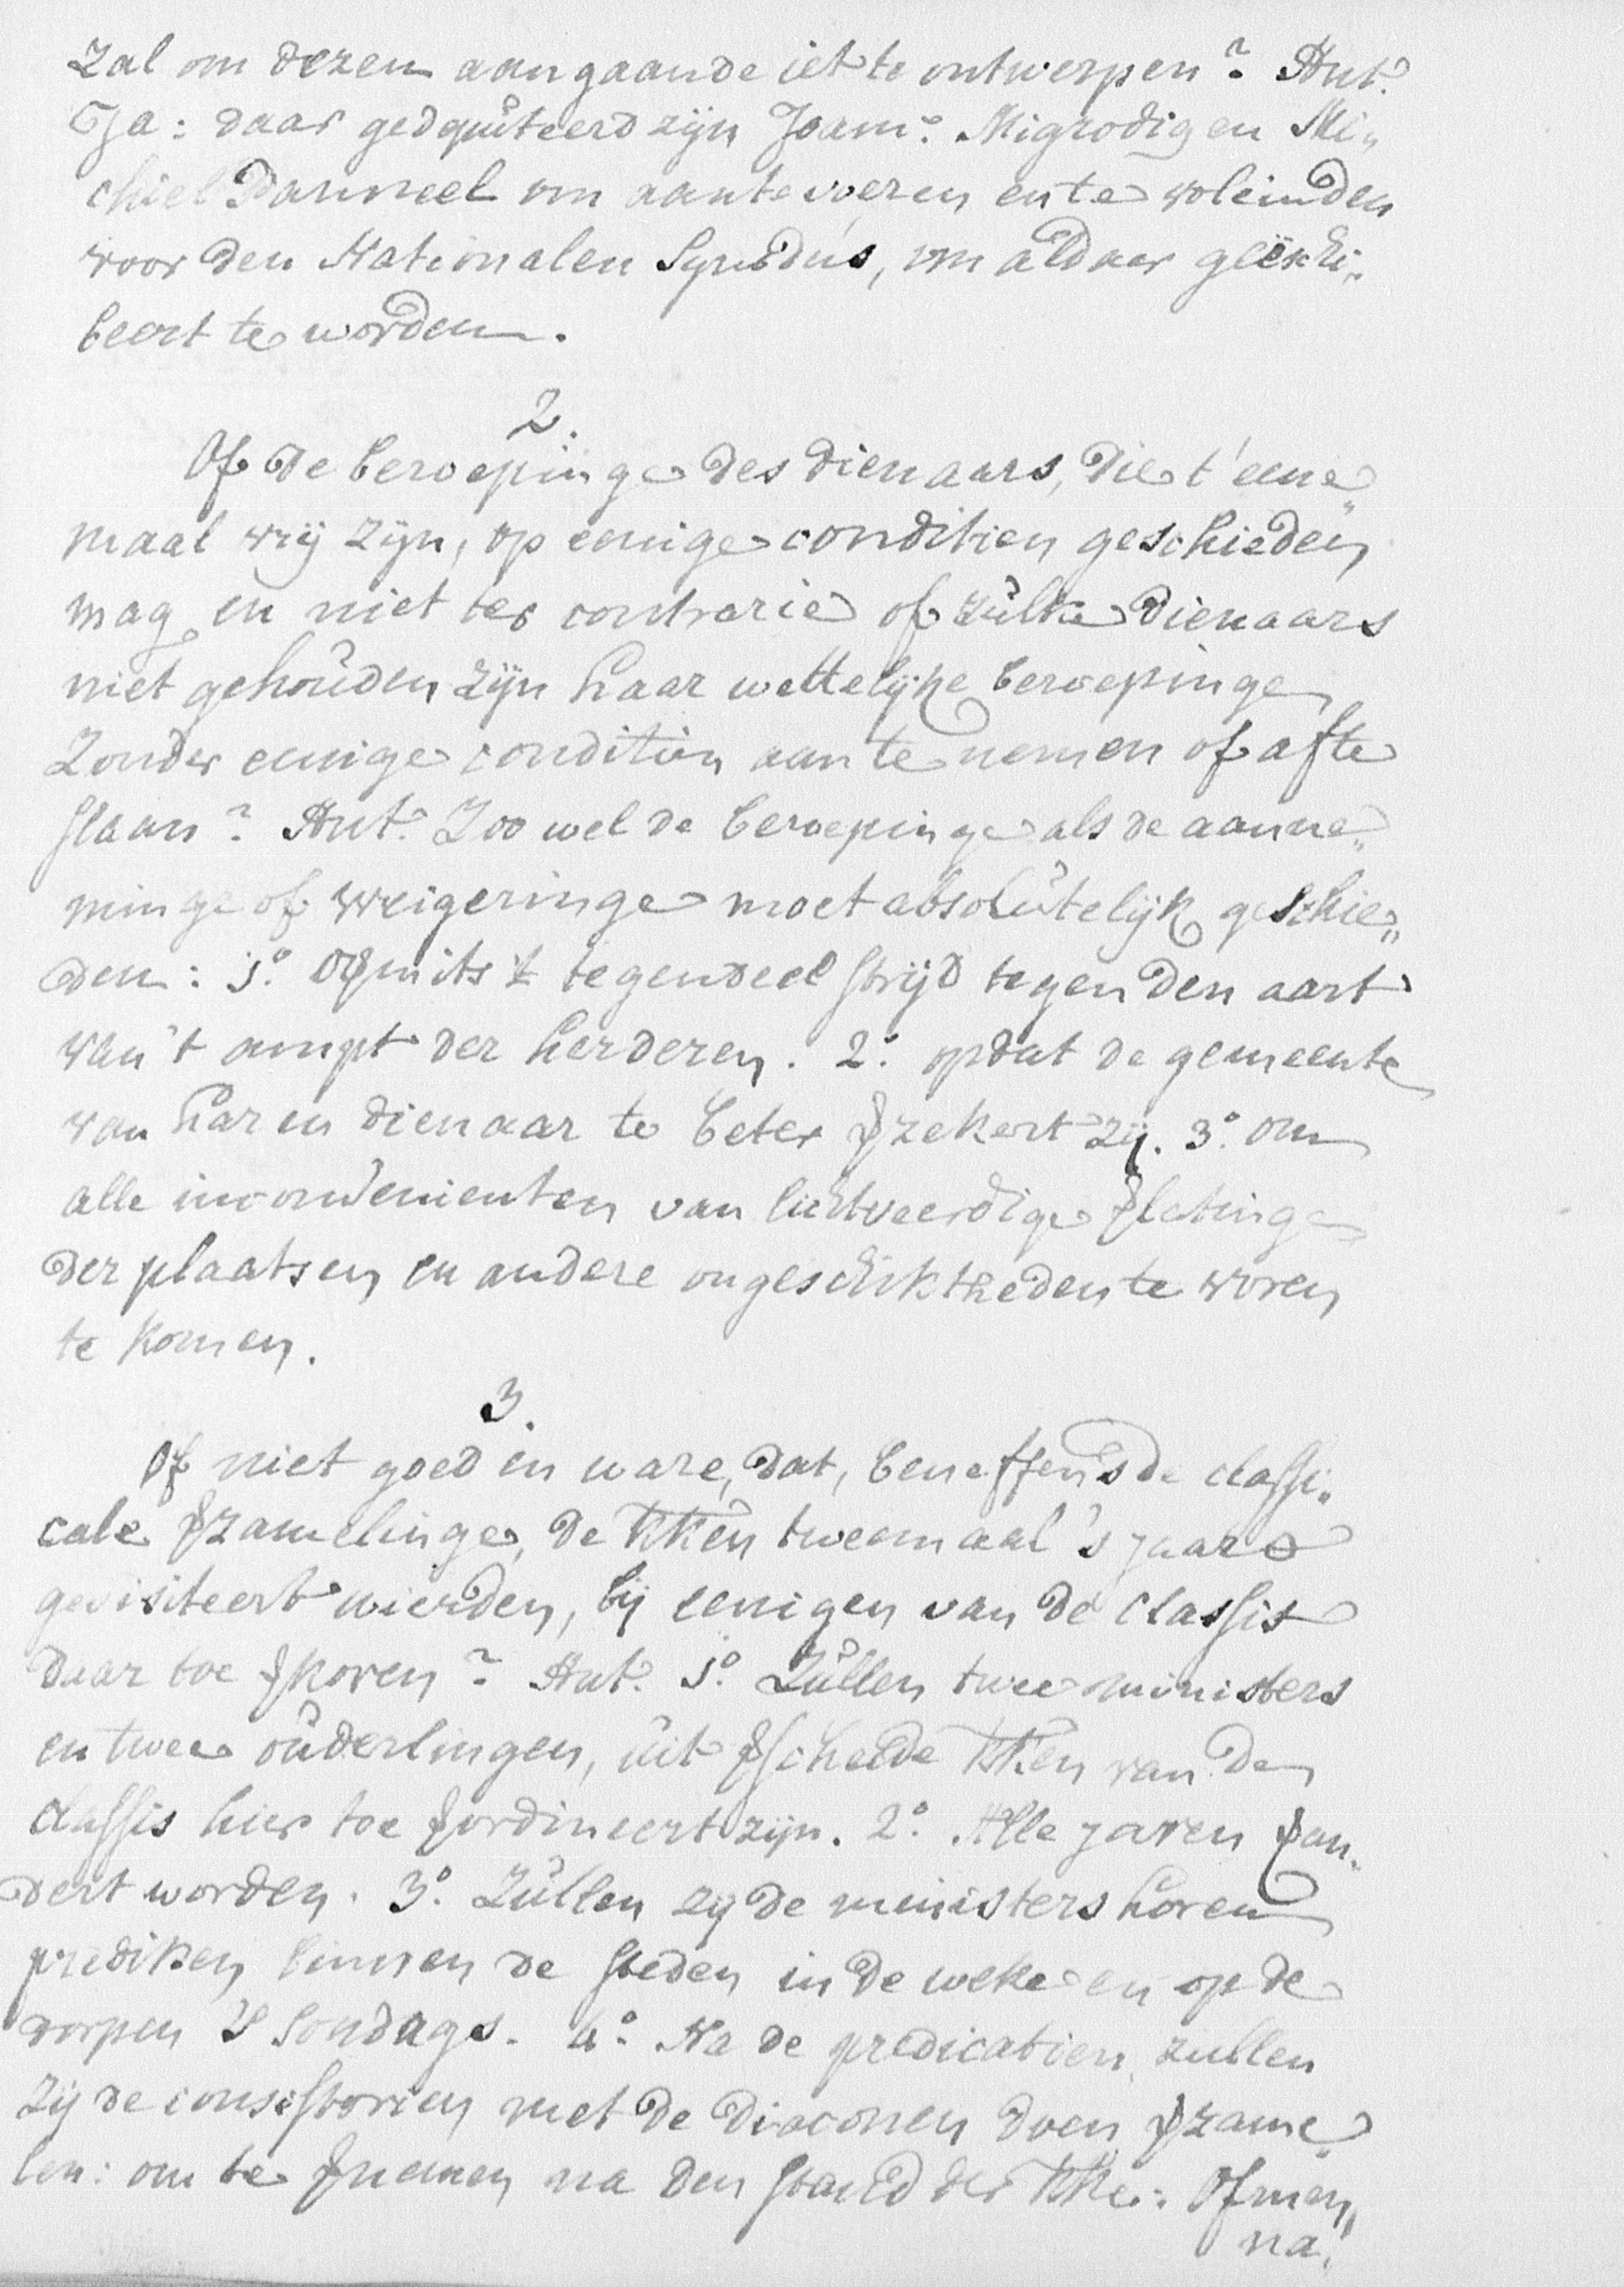 Zal om dezen aangaande iet te ontwerpen? Ant.
Ja: daar gedeputeerd zijn Joann. Migrodig en Mi„
chiel Panneel om aan te voeren en te voleinden
voor den Nationalen Synodus, om aldaar geëxhi„
beert te worden.
2.
Of de beroepinge des dienaars, die t'eene„
maal vrij zijn, op eenige conditien geschieden
mag, en niet ter contrarie of zulke dienaars
niet gehouden zijn haar wettelijke beroepinge
Zonder eenige conditien aan te nemen of af te
slaan? Ant. Zoo wel de beroepinge als de aanne„
minge of weigeringe moet absolutelijk geschie„
den: 1° opmits 't tegendeel strijd tegen den aart
van 't ampt der herderen. 2° opdat de gemeente
van haren dienaar te beter vzekert zij. 3° om
alle inconvenienten van lichtveerdige vlatinge
der plaatsen en andere ongeschikthedente voren
te komen.
3.
Of niet goed en ware, dat, beneffens de classi„
cale vzamelinge, de kken tweemaal 's jaars
gevisiteert wierden, bij eenigen van de classis
daar toe vkoren? Ant. 1° Zullen twee ministers
en twee ouderlingen, uit vscheide kken van den
classis hier toe vordineert zijn. 2° Alle jaren van„
dert worden. 3° Zullen zij de ministers horen
prediken binnen de steden in de weke en op de
dorpen 's Sondags. 4° Na de predicatien, zullen
zij de consistorien met de diaconen doen vzame„
len: om te vnemen na den stand der kke: Of men
na!